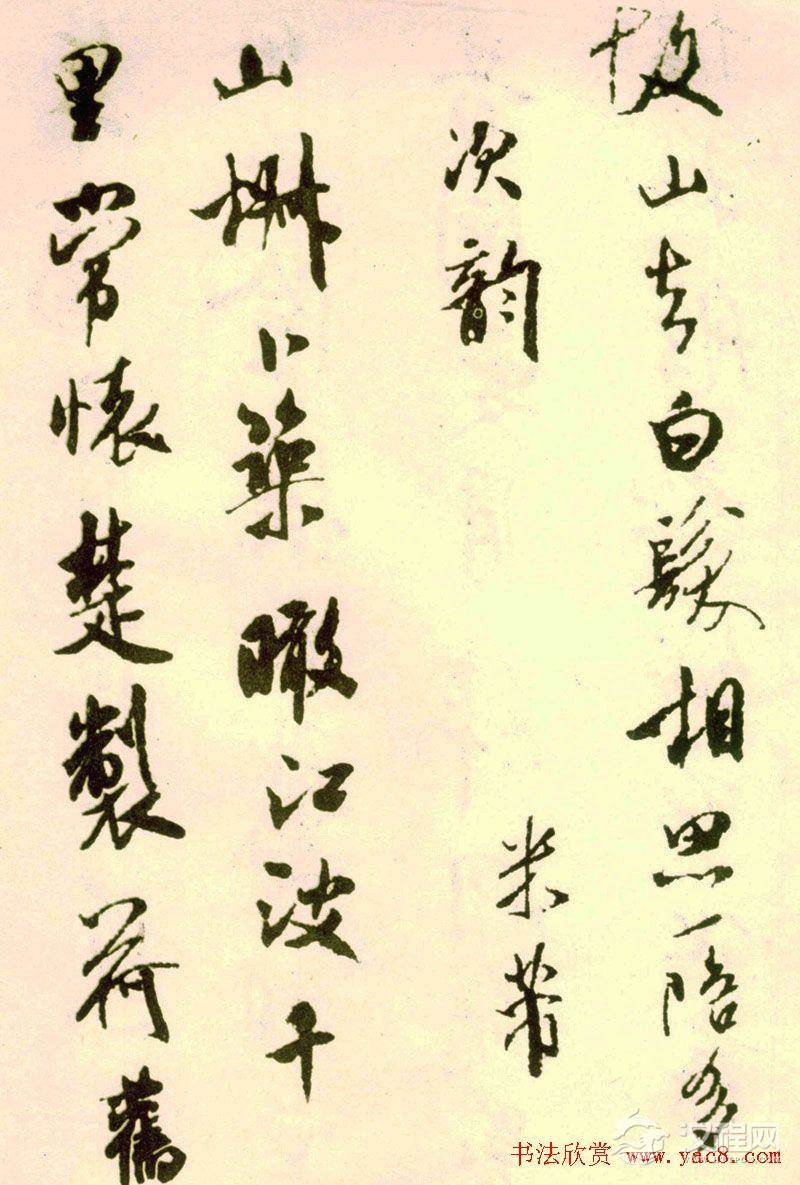 故山去白髮相思一陪多
次韻
米芾
山椒卜築瞰江波千
里常懷楚製荷舊
汉程网
书法欣赏 www.yac8.com